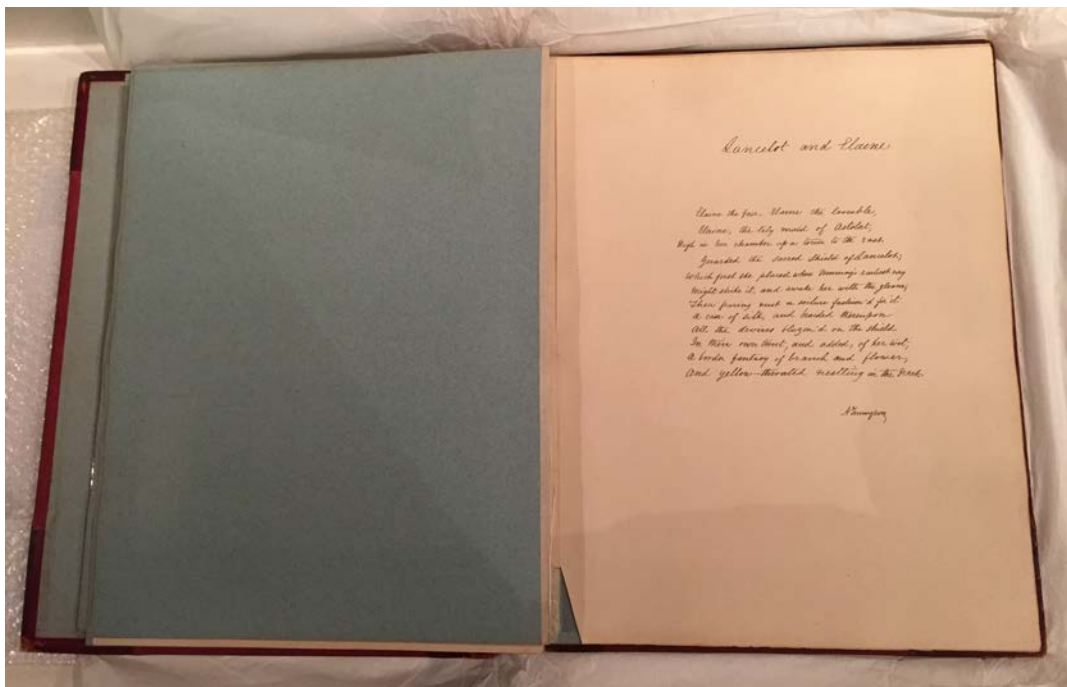 Lancelot and Elaine
Elaine the fair, Elaine the loveable,
Elaine, the lily maid of Astolat,
High in her chamber up a tower to the east
Guarded the sacred shield of Lancelot;
Which first she placed where morning's earliest ray
Might strike it, and awake her with the gleam;
Then fearing rust or soilure fashion'd for it
A case of silk, and braided thereupon
All the devices blazon'd on the shield
In their own tinct, and added, of her wit,
A border fantasy of branch and flower,
And yellow-throated nestling in the nest.
A Tennyson